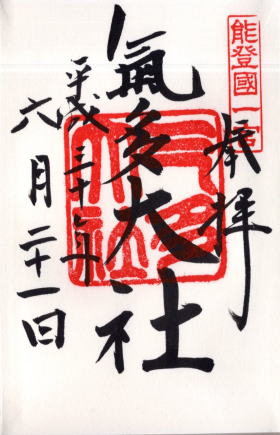 能登國一宮
奉拝
氣多大社
平成三十年
六月二十一日
氣多大社